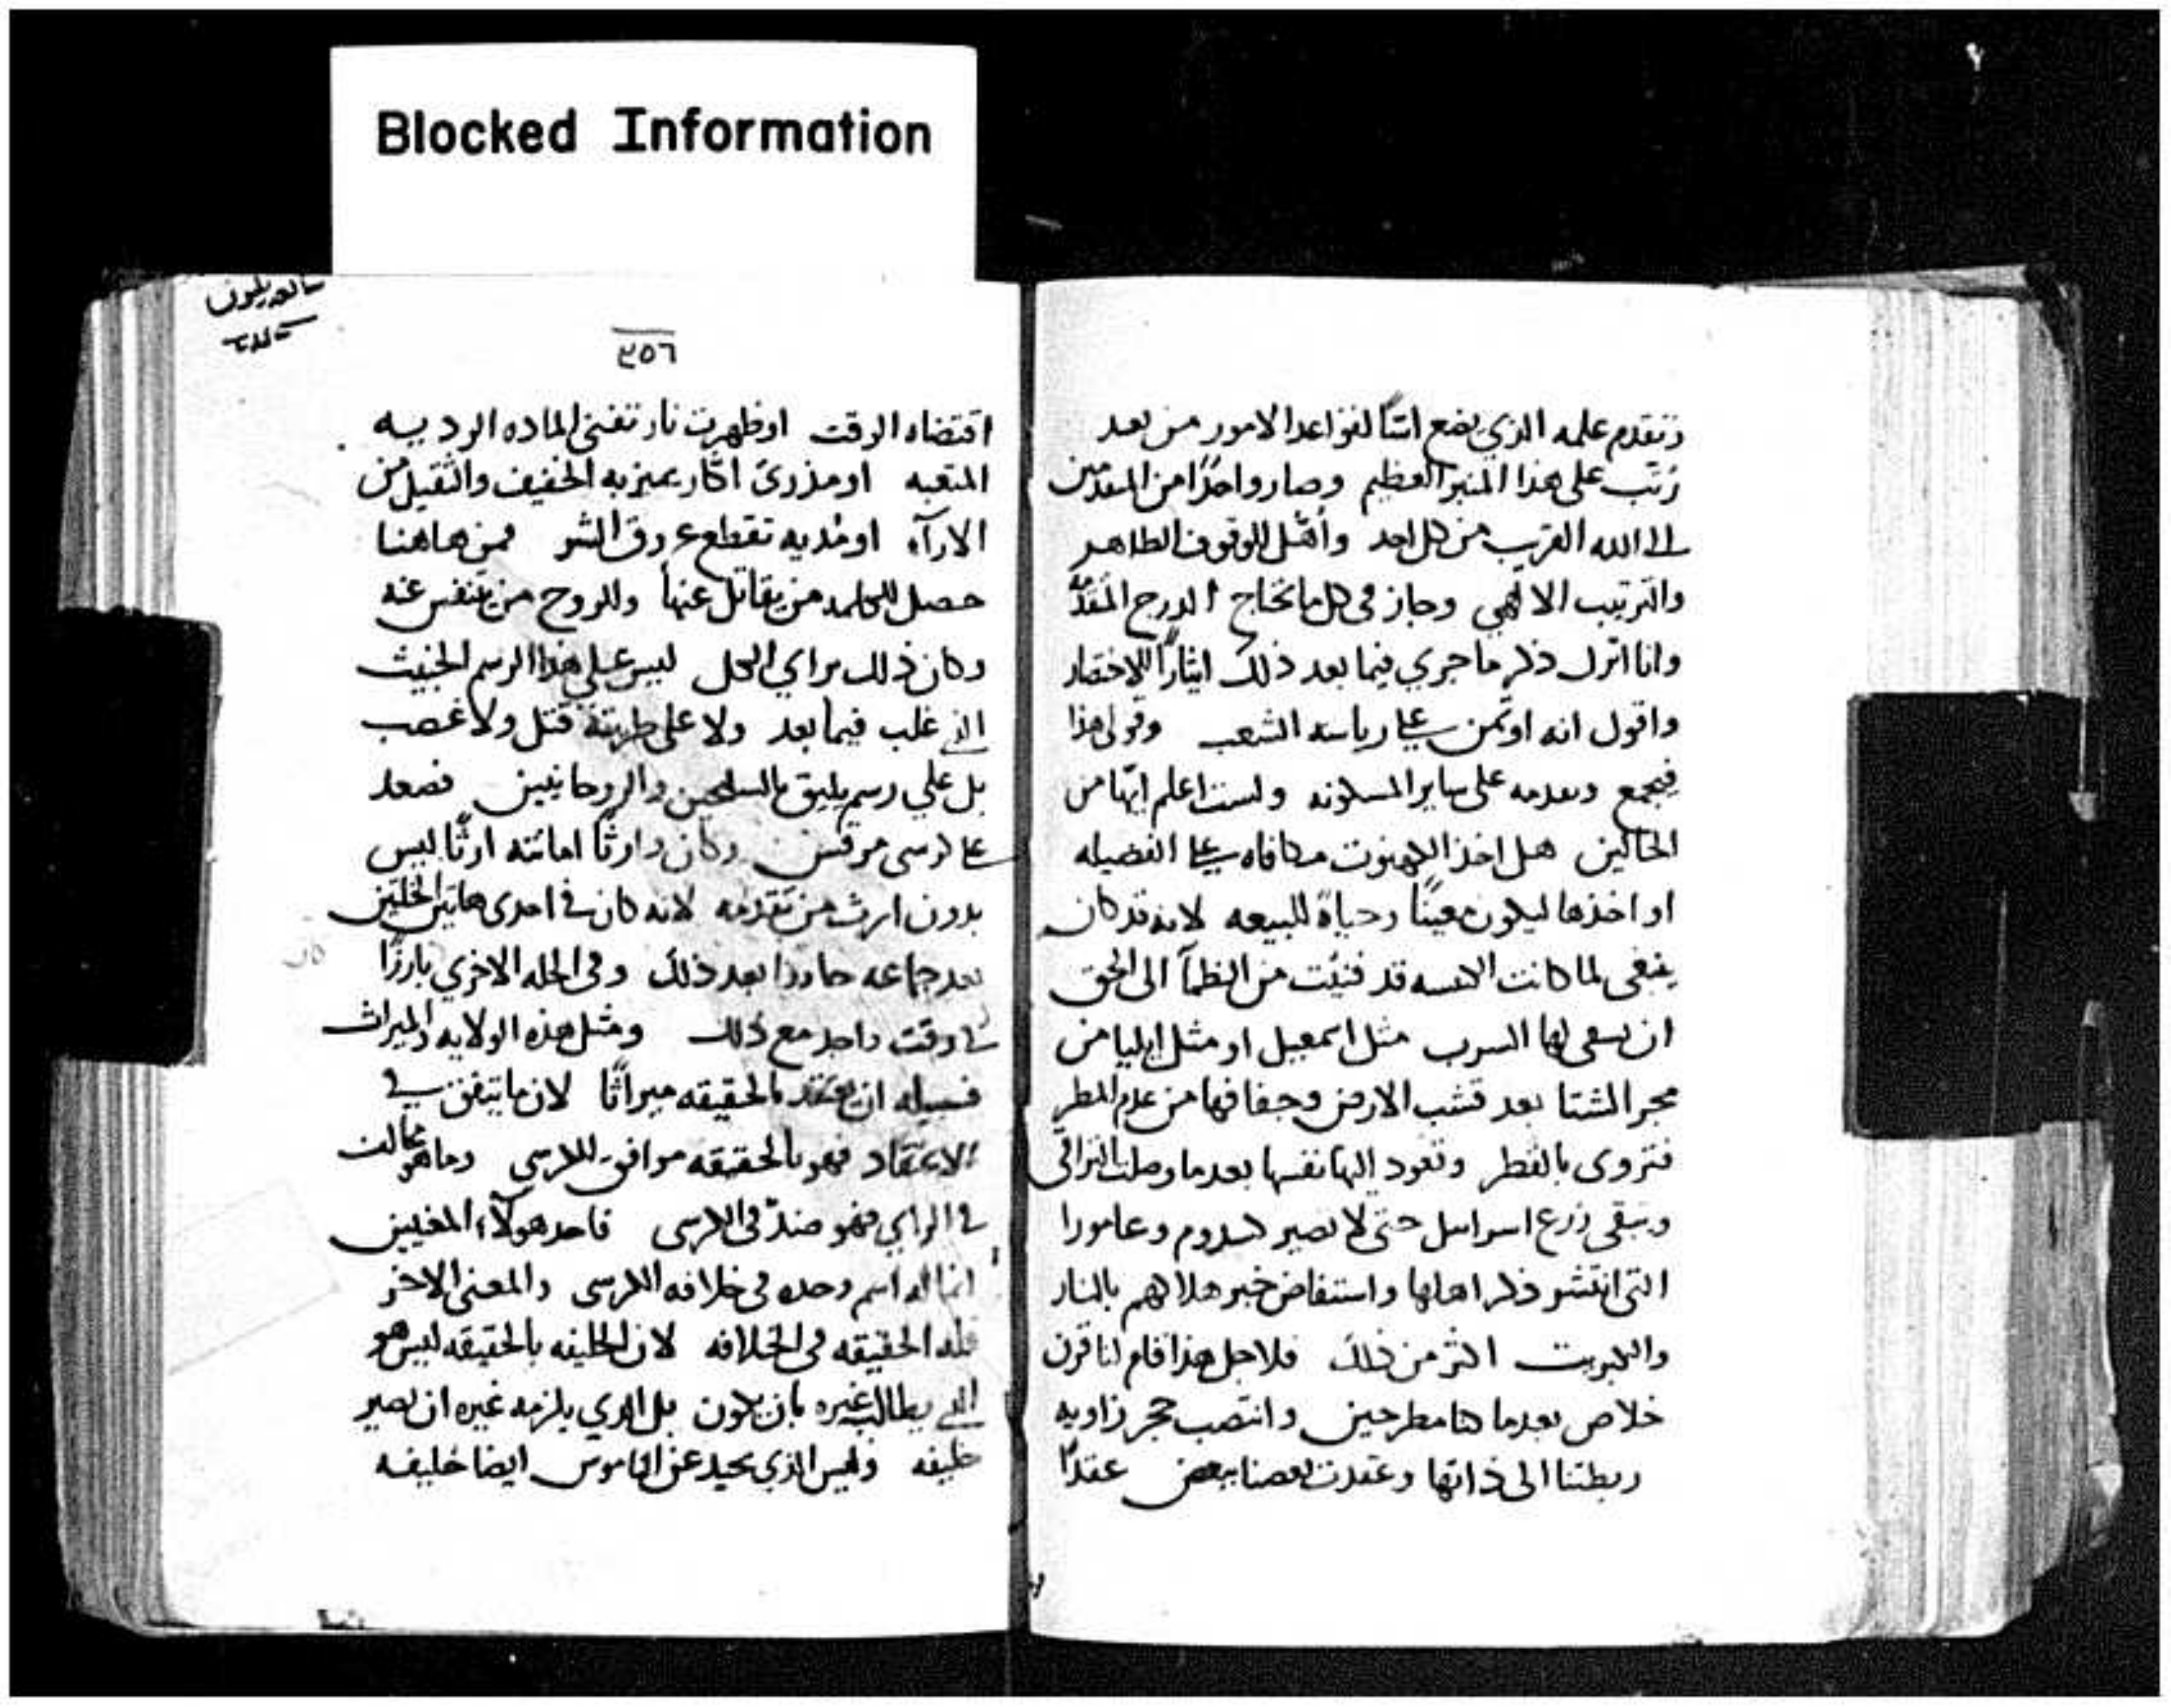 Blocked Information
وتقدم علمه الذي يضع اتنا لقواعد الامور من بعد
رتب على هذا المنبر العظيم وصار واحدًا من المقدمين
الى الله القريب من كل احد وأهّل للوقوف الطاهر
والترتيب الالهي وجاز في كل ما يحتاج الدرج
وانا اترك ذكر ما جري فيما بعد ذلك ايثارًا للاختصار
واقول انه اوتمن على رياسه الشعب وقولي هذا
فيجمع على ساير المسكونه ولست اعلم ايّما من
الحالين هل اخذ الكهنوت مكافاه على الفضيله
او اخذها ليكون معينًا وحياةً للبيعه لانه قد كان
ينبغي لما كانت قد فنيت من الظمآ الى الحق
ان يسقى لها الشرب مثل اسمعيل او مثل ايليا من
مجر الشتا بعد قشب الارض وجفافها من عدم المطر
فتروى بالقطر وتعود اليها نفسها بعدما وصلت
ويبقى زرع اسراييل حتى لا نصير كسدوم وعامورا
التى انتشر ذكر اهلها واستفاض خبر هلاكهم بالنار
والكبريت اكثر من ذلك فلاجل هذا قام لنا قرن
خلاص بعدما كنا مطرحين وانتصب حجر زاويه
ربطتنا الى ذاتها وعقدت بعضنا ببعض عقدًا
٣٥٦
اقتضاه الوقت او ظهرت نار تفني الماده الرديه
المتعبه او مذرى اكار يميز به الخفيف والثقيل من
الارآء او مُديه تقطع عروق الشر فمن هاهنا
حصل للكلمه من يقاتل عنها وللروح من يتنفس عنه
وكان ذلك براي الكل ليس على هذا الرسم الخبيث
الذي غلب فيما بعد ولا على طريقة قتل ولا غصب
بل على رسم يليق بالسليحين والروحانيين فصعد
على كرسي مرقس وكان وارثًا امانته ارثًا ليس
بدون ارث من تقدمه لانه كان في احدى هاتين الخلتين
بعد جماعه بعد ذلك وفي الخله الاخري بارزًا
في وقت واحد مع ذلك ومثل هذه الولايه والميراث
فسبيله ان يعتقد بالحقيقه ميراثًا لان ما يتفق في
الاعتقاد فهو بالحقيقه موافق للكرسي وما هو مخالف
في الراي فهو ضدّ في الكرسي فاحد هولآء المعنيين
انما له اسم وحده في خلافه الكرسي والمعنى الاخر
فله الحقيقه في الخلافه لان الخليفه بالحقيقه ليس هو
الذي يطالب غيره بان يكون بل الذي يلزمه غيره ان يصير
خليفه وليس الذي يحيد عن الناموس ايضا خليفه